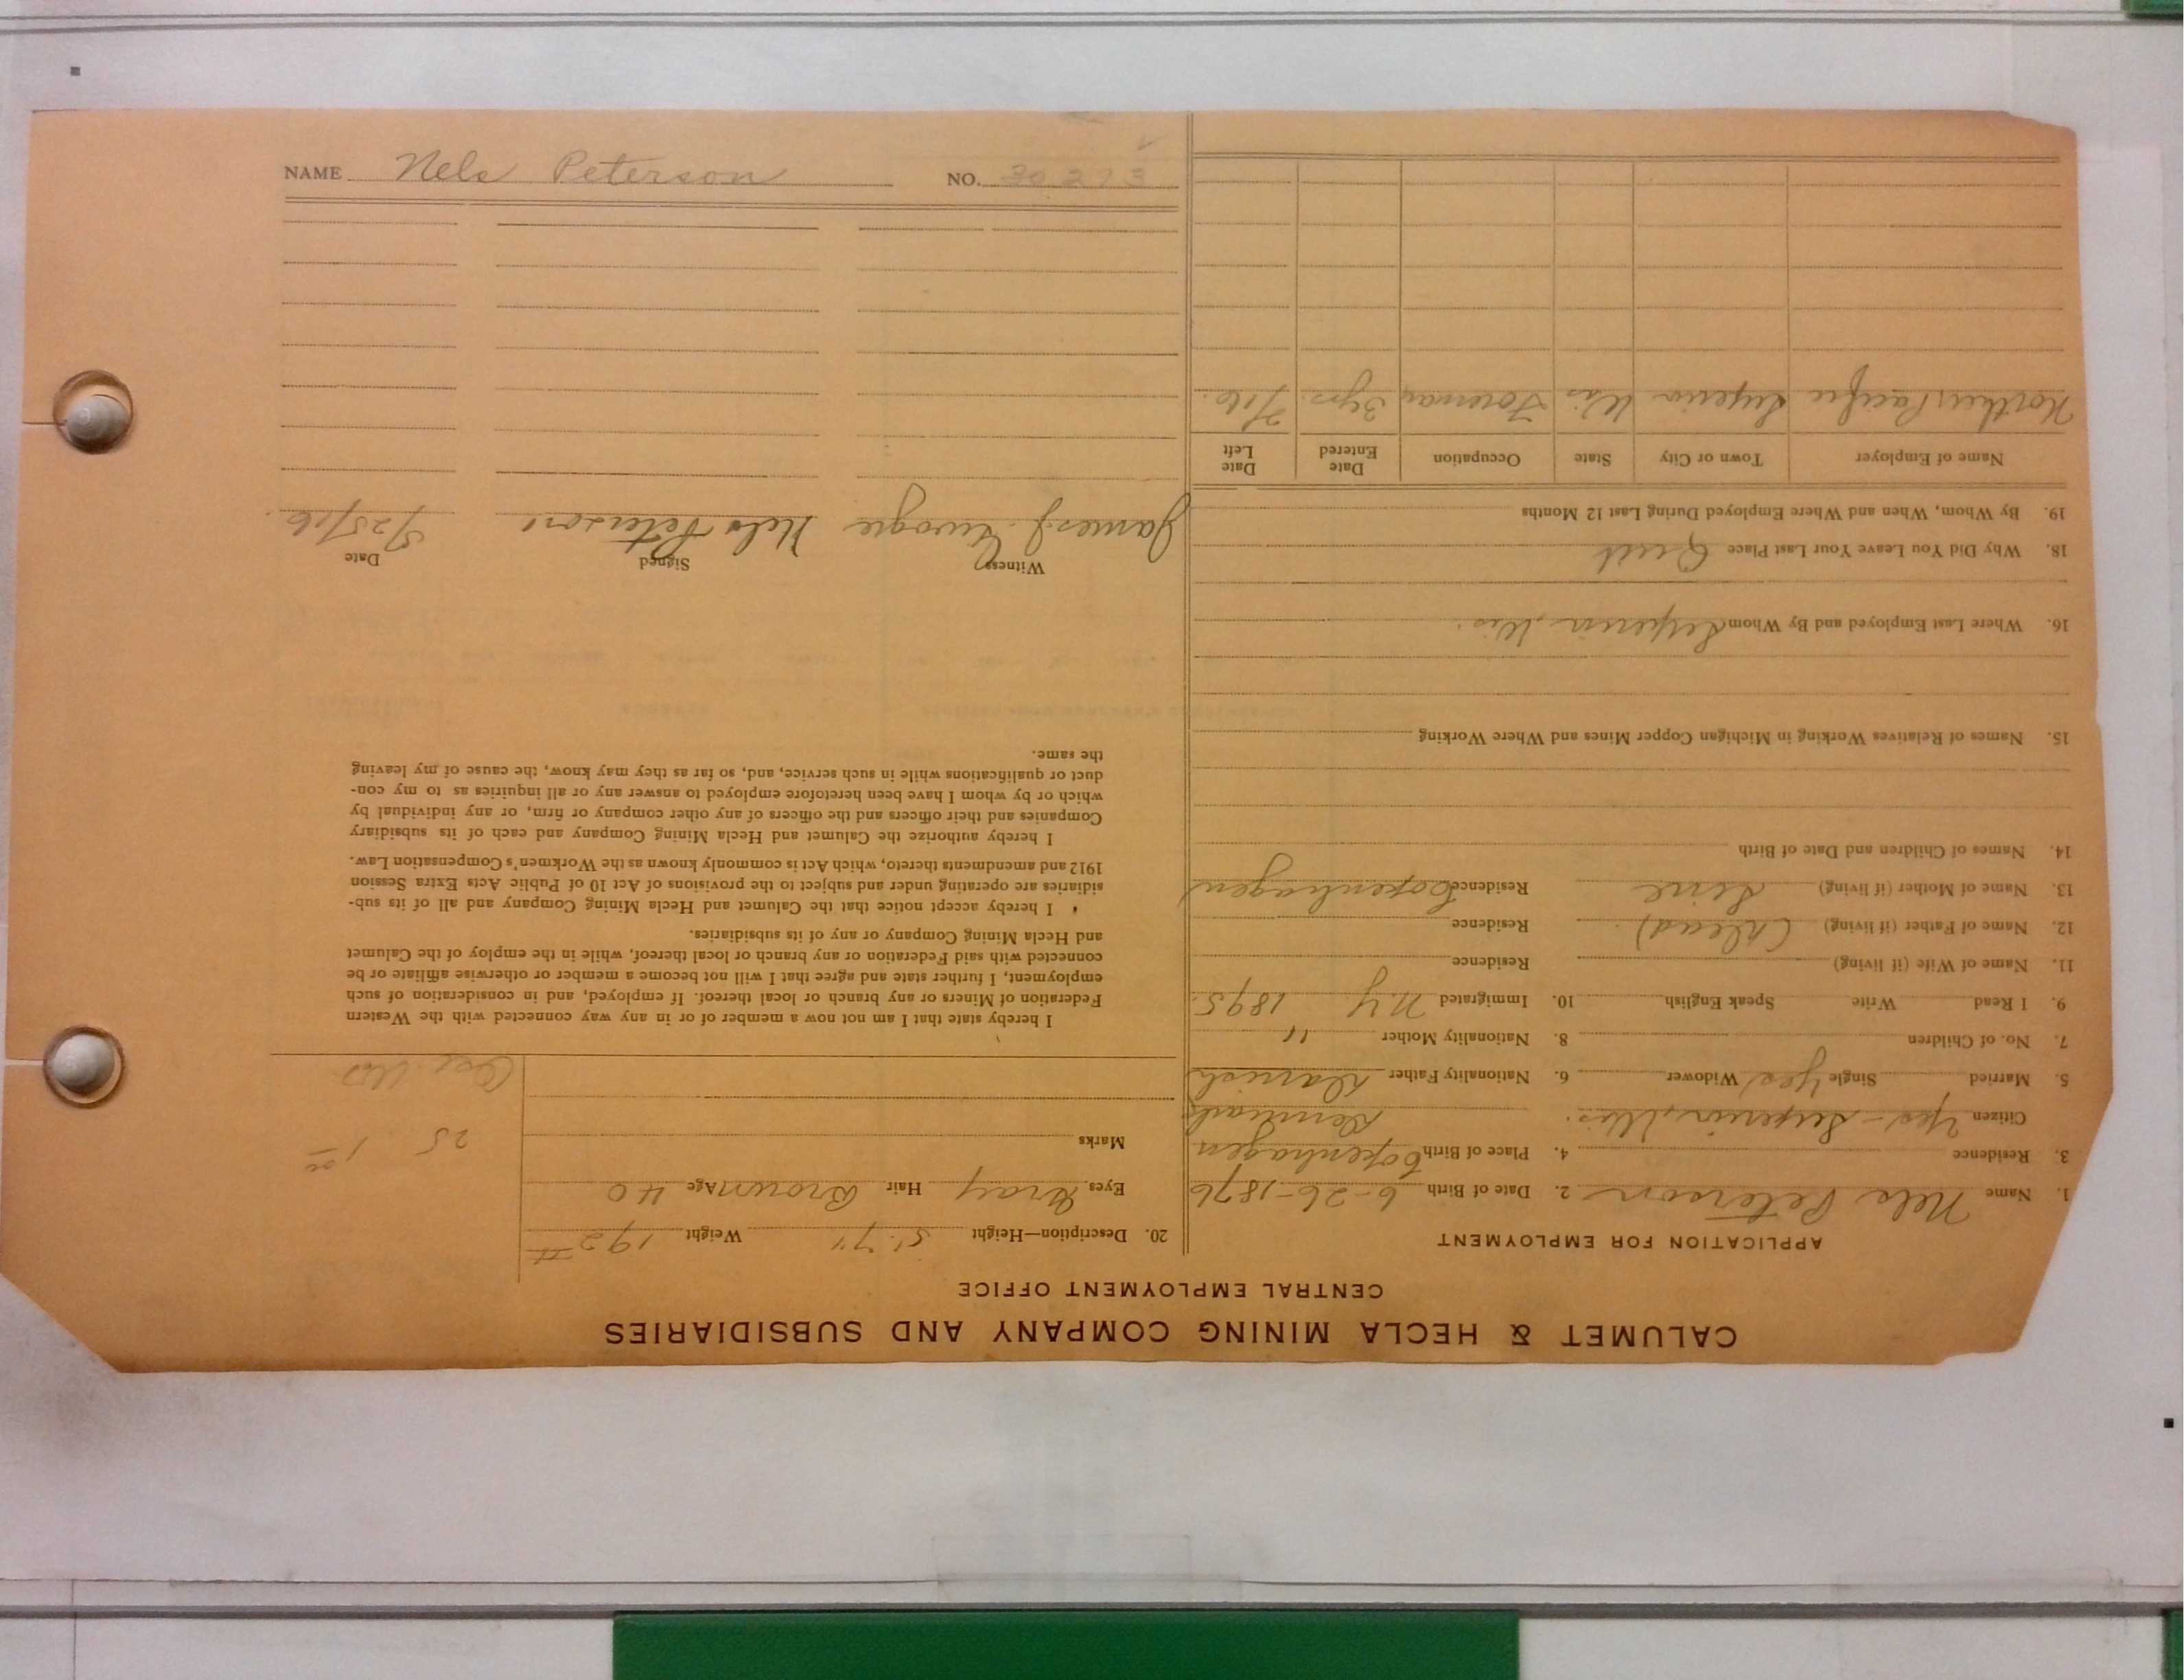 NAME Nels Peterson NO. 30293
CALUMET & HECLA MINING COMPANY AND SUBSIDIARIES
CENTRAL EMPLOYMENT OFFICE
APPLICATION FOR EMPLOYMENT
1. Name Nels Peterson 2. Date of Birth 6-26-1876
3. Residence 4. Place of Birth Copenhagen
Citizen Yes - Superior, Wis. Denmark
5. Married Single Yes Widower 6. Nationality Father Danish
7. No. of Children 8. Nationality Mother "
9. I Read Write Speak English 10. Immigrated N.Y. 1895.
11. Name of Wife (if living) Residence
12. Name of Father (if living) (Dead) Residence
13. Name of Mother (if living) Sine Residence Copenhagen
14. Names of Children and Date of Birth
15. Names of Relatives Working in Michigan Copper Mines and Where Working
16. Where Last Employed and By Whom Superior, Wis.
18. Why Did You Leave Your Last Place Quit
19. By Whom, When and Where Employed During Last 12 Months
Name of Employer Town or City State Occupation Date Entered Date Left
Northern Pacific Superior Wis Foreman 3 yrs.
20. Description—Height 5' 7" Weight 192 #
Eyes Gray Hair Brown Age 40
Marks
25 1 00
I hereby state that I am not now a member of or in any way connected with the Western
Federation of Miners or any branch or local thereof. If employed, and in consideration of such
employment, I further state and agree that I will not become a member or otherwise affiliate or be
connected with said Federation or any branch or local thereof, while in the employ of the Calumet
and Hecla Mining Company or any of its subsidiaries.
I hereby accept notice that the Calumet and Hecla Mining Company and all of its sub-
sidiaries are operating under and subject to the provisions of Act 10 of Public Acts Extra Session
1912 and amendments thereto, which Act is commonly known as the Workmen's Compensation Law.
I hereby authorize the Calumet and Hecla Mining Company and each of its subsidiary
Companies and their officers and the officers of any other company or firm, or any individual by
which or by whom I have been heretofore employed to answer any or all inquiries as to my con-
duct or qualifications while in such service, and, so far as they may know, the cause of my leaving
the same.
Witness Signed Date
James J. Nels Peterson /25/16.